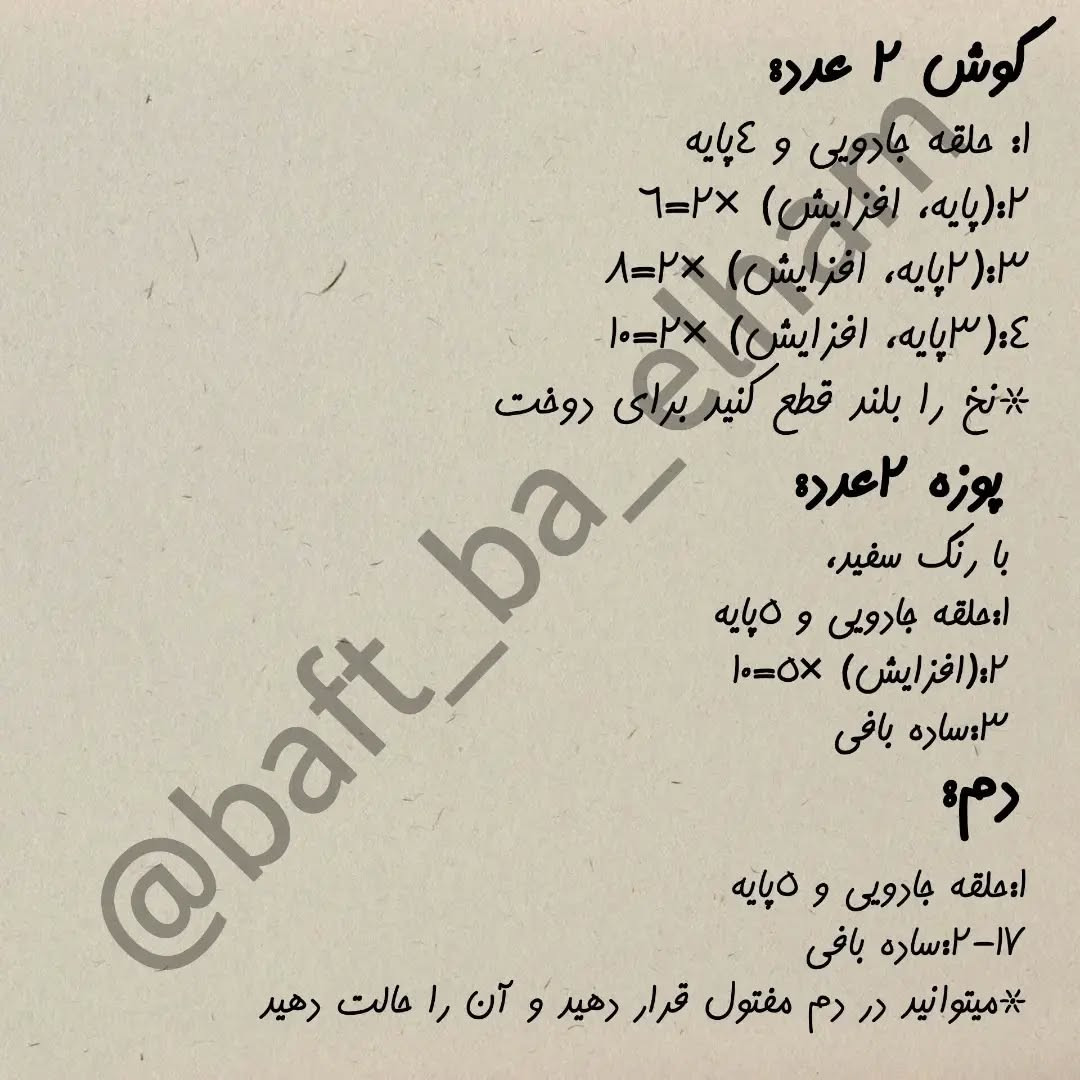 گوش ۲ عدد:
۱: حلقه جادویی و ٤پایه
۲:(پایه، افزایش) ×۲=٦
۳:(۲پایه، افزایش) ×۲=۸
٤:(۳پایه، افزایش) ×۲=۱۰
*نخ را بلند قطع کنید برای دوخت
پوزه ۲عدد:
با رنگ سفید،
۱:حلقه جادویی و ۵پایه
۲:(افزایش) ×۵=۱۰
۳:ساده بافی
دم:
۱:حلقه جادویی و ۵پایه
۲-۱۷:ساده بافی
*میتوانید در دم مفتول قرار دهید و آن را حالت دهید
@baft_ba_elham